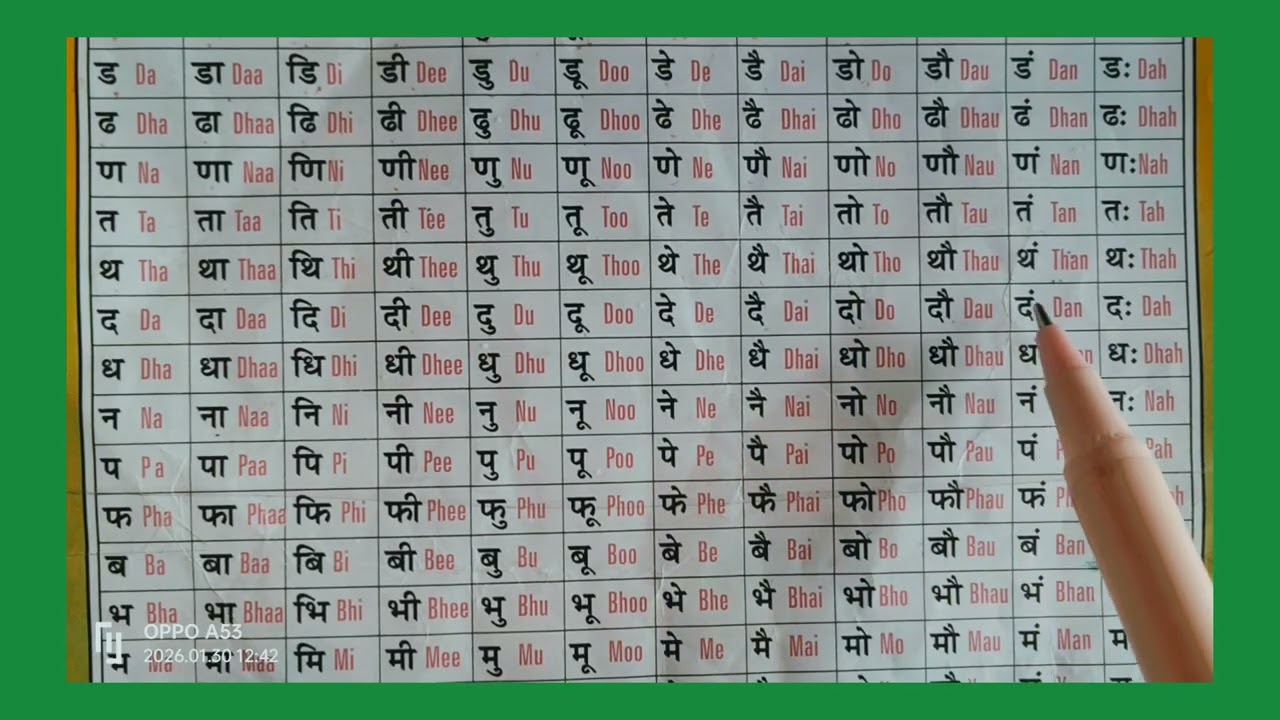 ड Da डा Daa डि Di डी Dee डु Du डू Doo डे De डै Dai डो Do डौ Dau डं Dan डः Dah
ढ Dha ढा Dhaa ढि Dhi ढी Dhee ढु Dhu ढू Dhoo ढे Dhe ढै Dhai ढो Dho ढौ Dhau ढं Dhan ढः Dhah
ण Na णा Naa णि Ni णी Nee णु Nu णू Noo णे Ne णै Nai णो No णौ Nau णं Nan णः Nah
त Ta ता Taa ति Ti ती Tee तु Tu तू Too ते Te तै Tai तो To तौ Tau तं Tan तः Tah
थ Tha था Thaa थि Thi थी Thee थु Thu थू Thoo थे The थै Thai थो Tho थौ Thau थं Than थः Thah
द Da दा Daa दि Di दी Dee दु Du दू Doo दे De दै Dai दो Do दौ Dau दं Dan दः Dah
ध Dha धा Dhaa धि Dhi धी Dhee धु Dhu धू Dhoo धे Dhe धै Dhai धो Dho धौ Dhau धः Dhah
न Na ना Naa नि Ni नी Nee नु Nu नू Noo ने Ne नै Nai नो No नौ Nau नं नः Nah
प Pa पा Paa पि Pi पी Pee पु Pu पू Poo पे Pe पै Pai पो Po पौ Pau पं
फ Pha फा Phaa फि Phi फी Phee फु Phu फू Phoo फे Phe फै Phai फो Pho फौ Phau फं
ब Ba बा Baa बि Bi बी Bee बु Bu बू Boo बे Be बै Bai बो Bo बौ Bau बं Ban
भ Bha भा Bhaa भि Bhi भी Bhee भु Bhu भू Bhoo भे Bhe भै Bhai भो Bho भौ Bhau भं Bhan
म Ma मा Maa मि Mi मी Mee मु Mu मू Moo मे Me मै Mai मो Mo मौ Mau मं Man
OPPO A53
2026.01.30 12:42